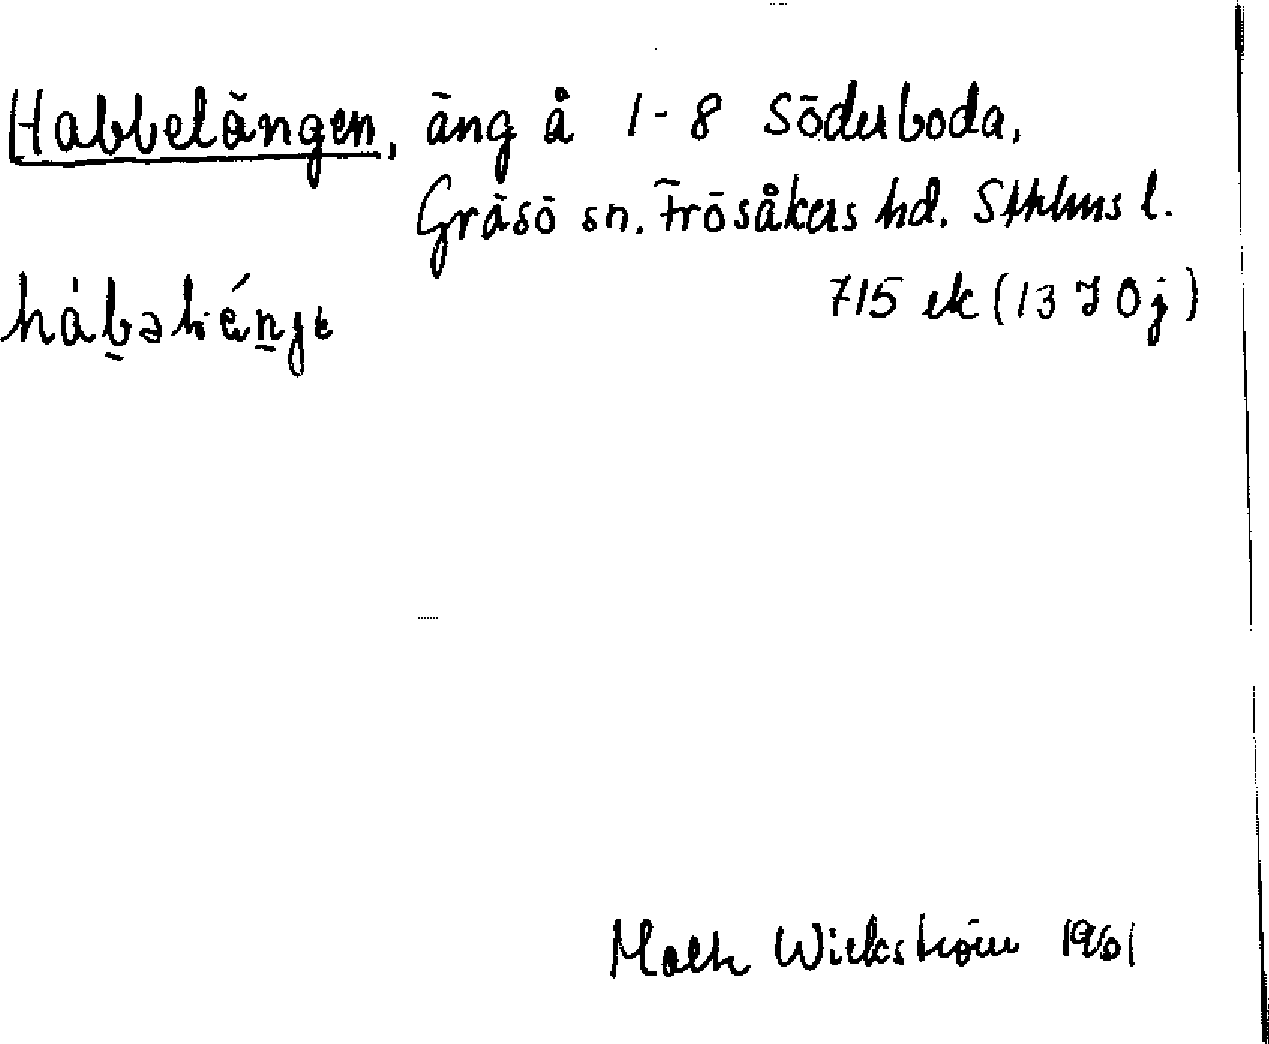 Habbelängen, äng å 1-8 Söderboda,
Gräsö sn. Frösåkers hd. Sthlms l.
715 ek (13 J 0 j)
Wickström 1961